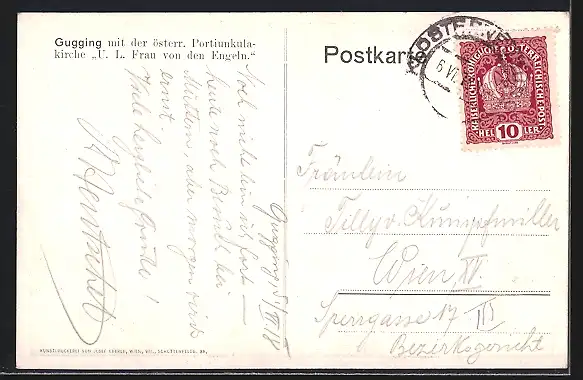 Gugging mit der österr. Portiunkula-
kirche „U. L. Frau von den Engeln."
Postkarte
KLOSTERNEU
6 VI
KAISERLICHE KÖNIGLICHE ÖSTERREICHISCHE POST
HEL 10 LER
Gugging 5/VI 18
Noch nicht bin ich fort —
heute noch Besuch bei
Muttern, aber morgen wird's
ernst.
Viele herzliche Grüße!
Fräulein
Tilly v. Kumpfmiller
Wien XV.
Sperrgasse 17 III
Bezirksgericht
KUNSTDRUCKEREI VON JOSEF EBERLE, WIEN, VII., SCHOTTENFELDG. 38.